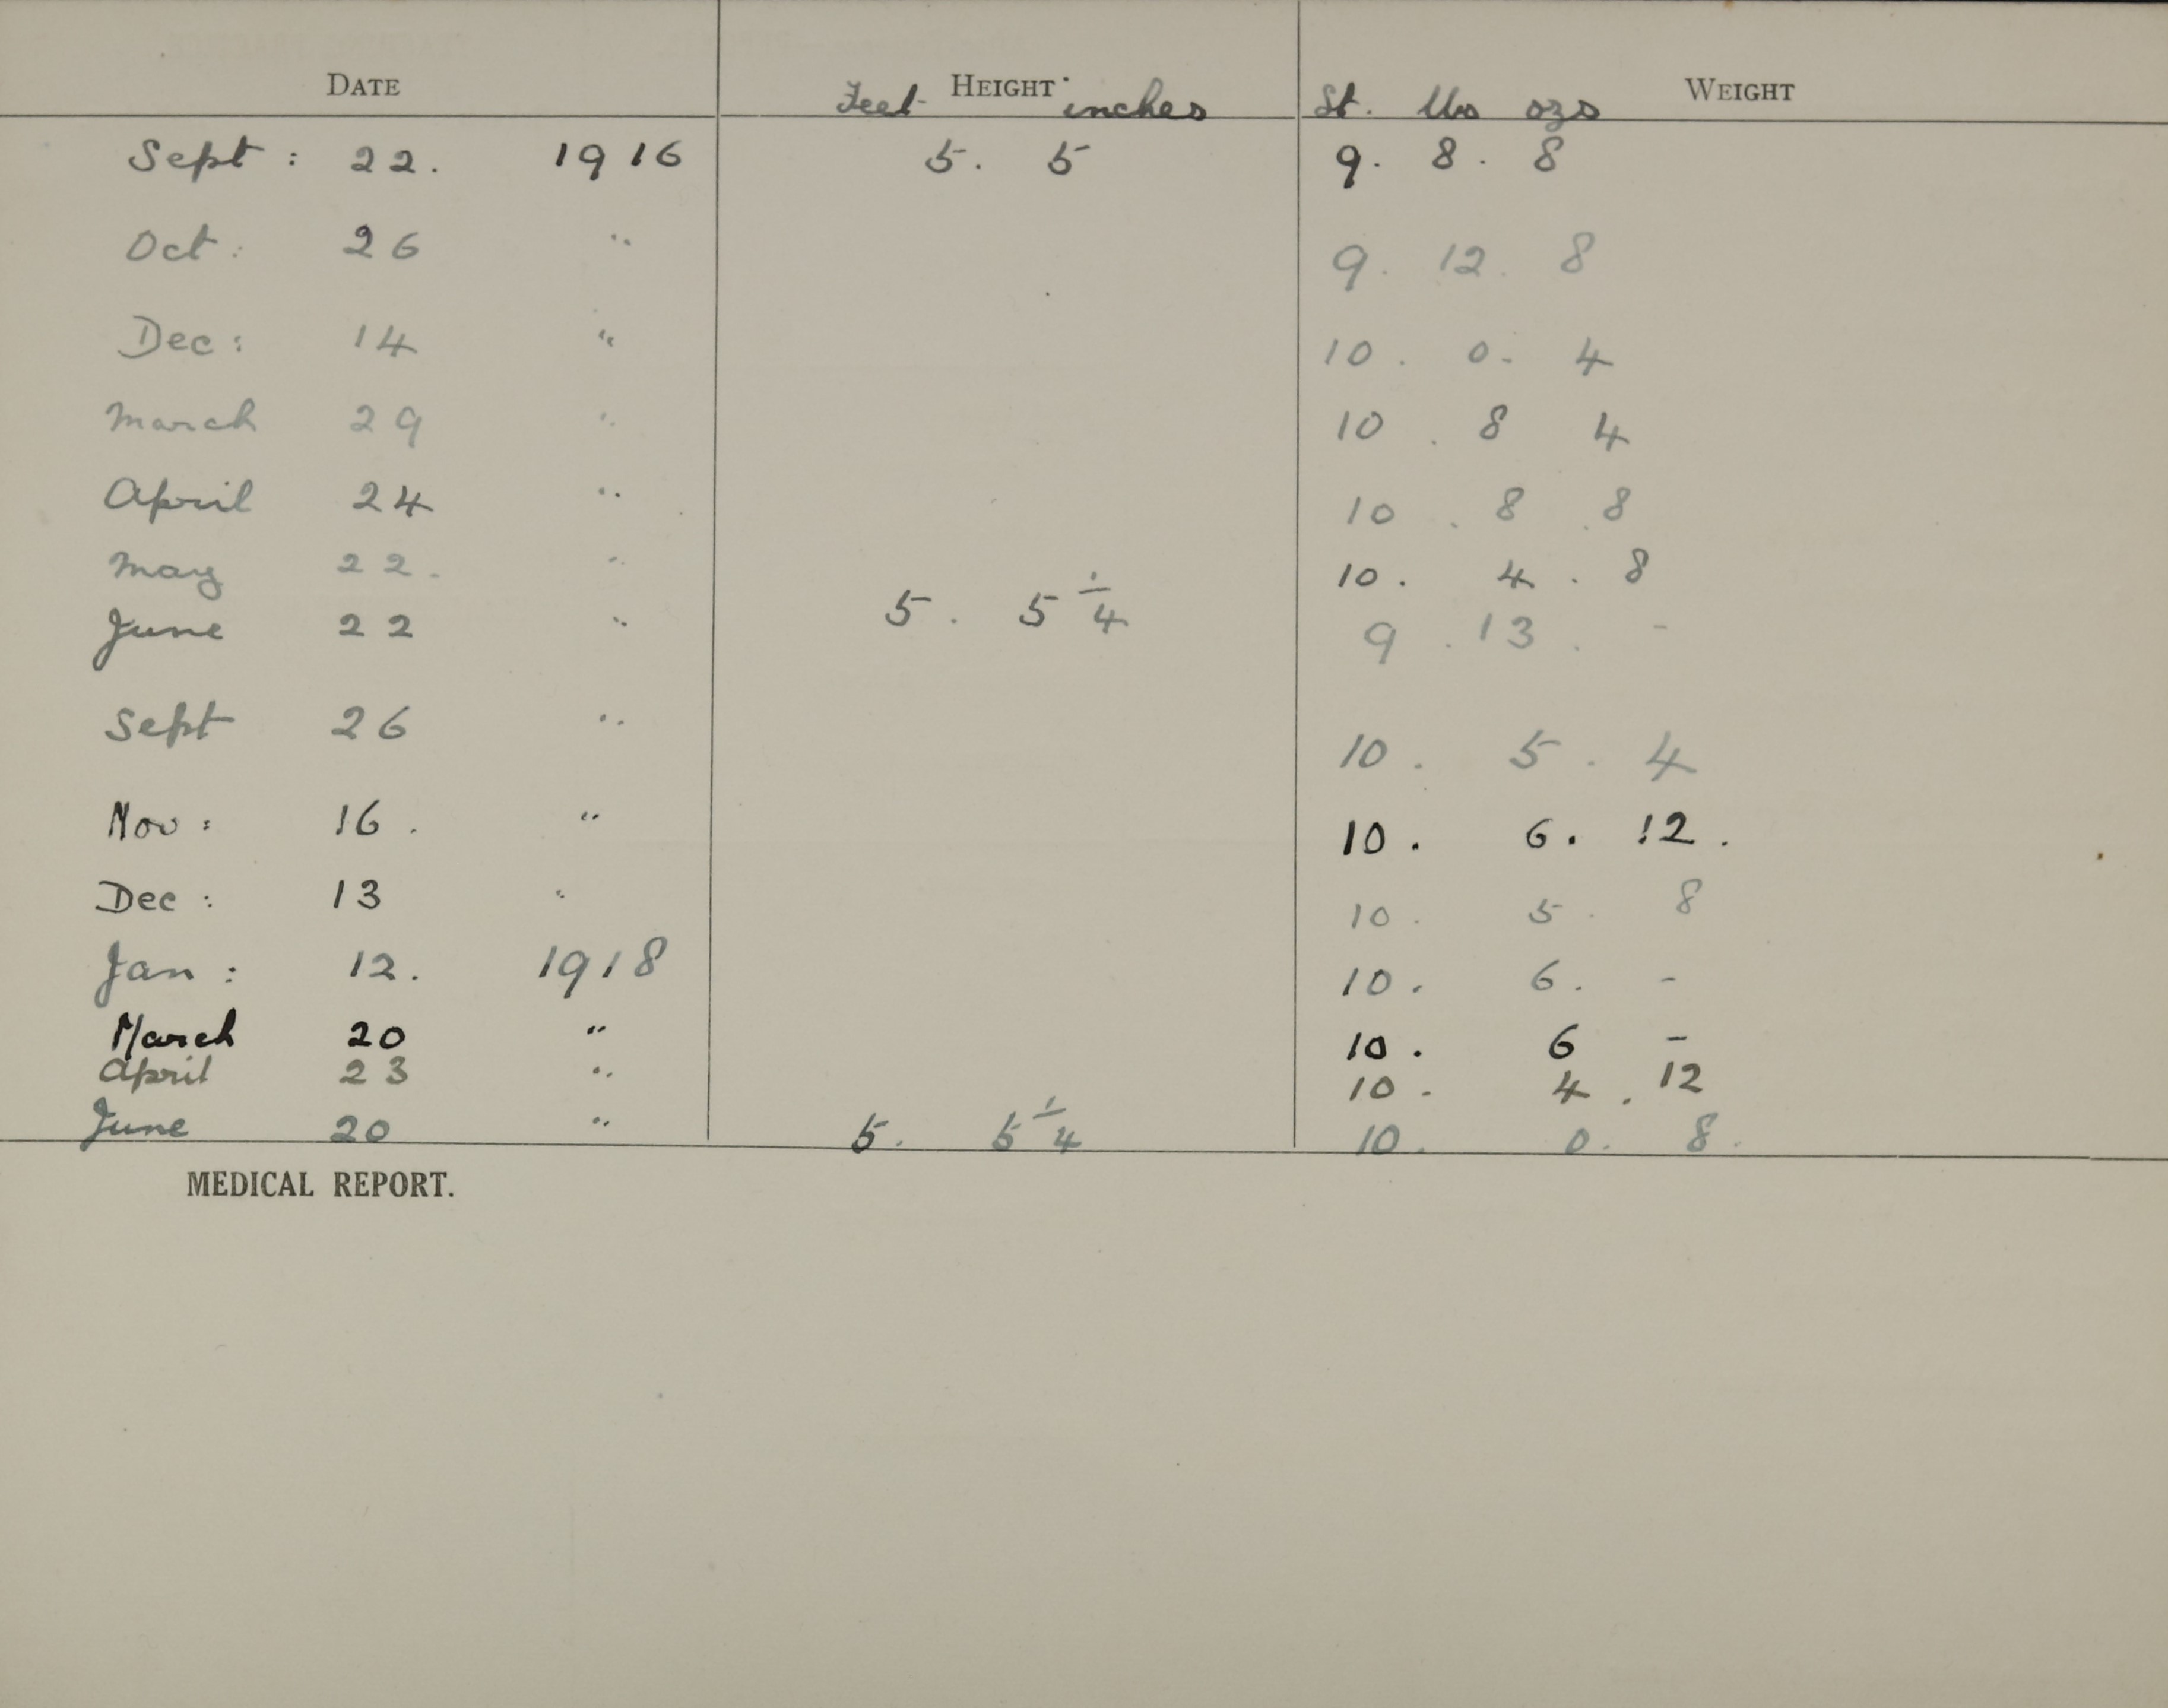 DATE HEIGHT WEIGHT
Feet inches St. lbs ozs
Sept : 22. 1916 5. 5 9. 8. 8
Oct : 26 " 9. 12. 8
Dec : 14 " 10. 0. 4
March 29 " 10. 8 4
April 24 " 10. 8. 8
May 22. " 10. 4. 8
June 22 " 5. 5 1/4 9. 13. -
Sept 26 " 10. 5. 4
Nov : 16. " 10. 6. 12.
Dec : 13 " 10. 5. 8
Jan : 12. 1918 10. 6. -
March 20 " 10. 6 -
April 23 " 10. 4. 12
June 20 " 5. 5 1/4 10. 0. 8.
MEDICAL REPORT.